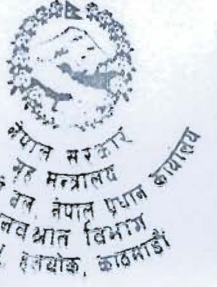 नेपाल सरकार
गृह मन्त्रालय
बल, नेपाल प्रधान कार्यालय
विभाग
काठमाडौं